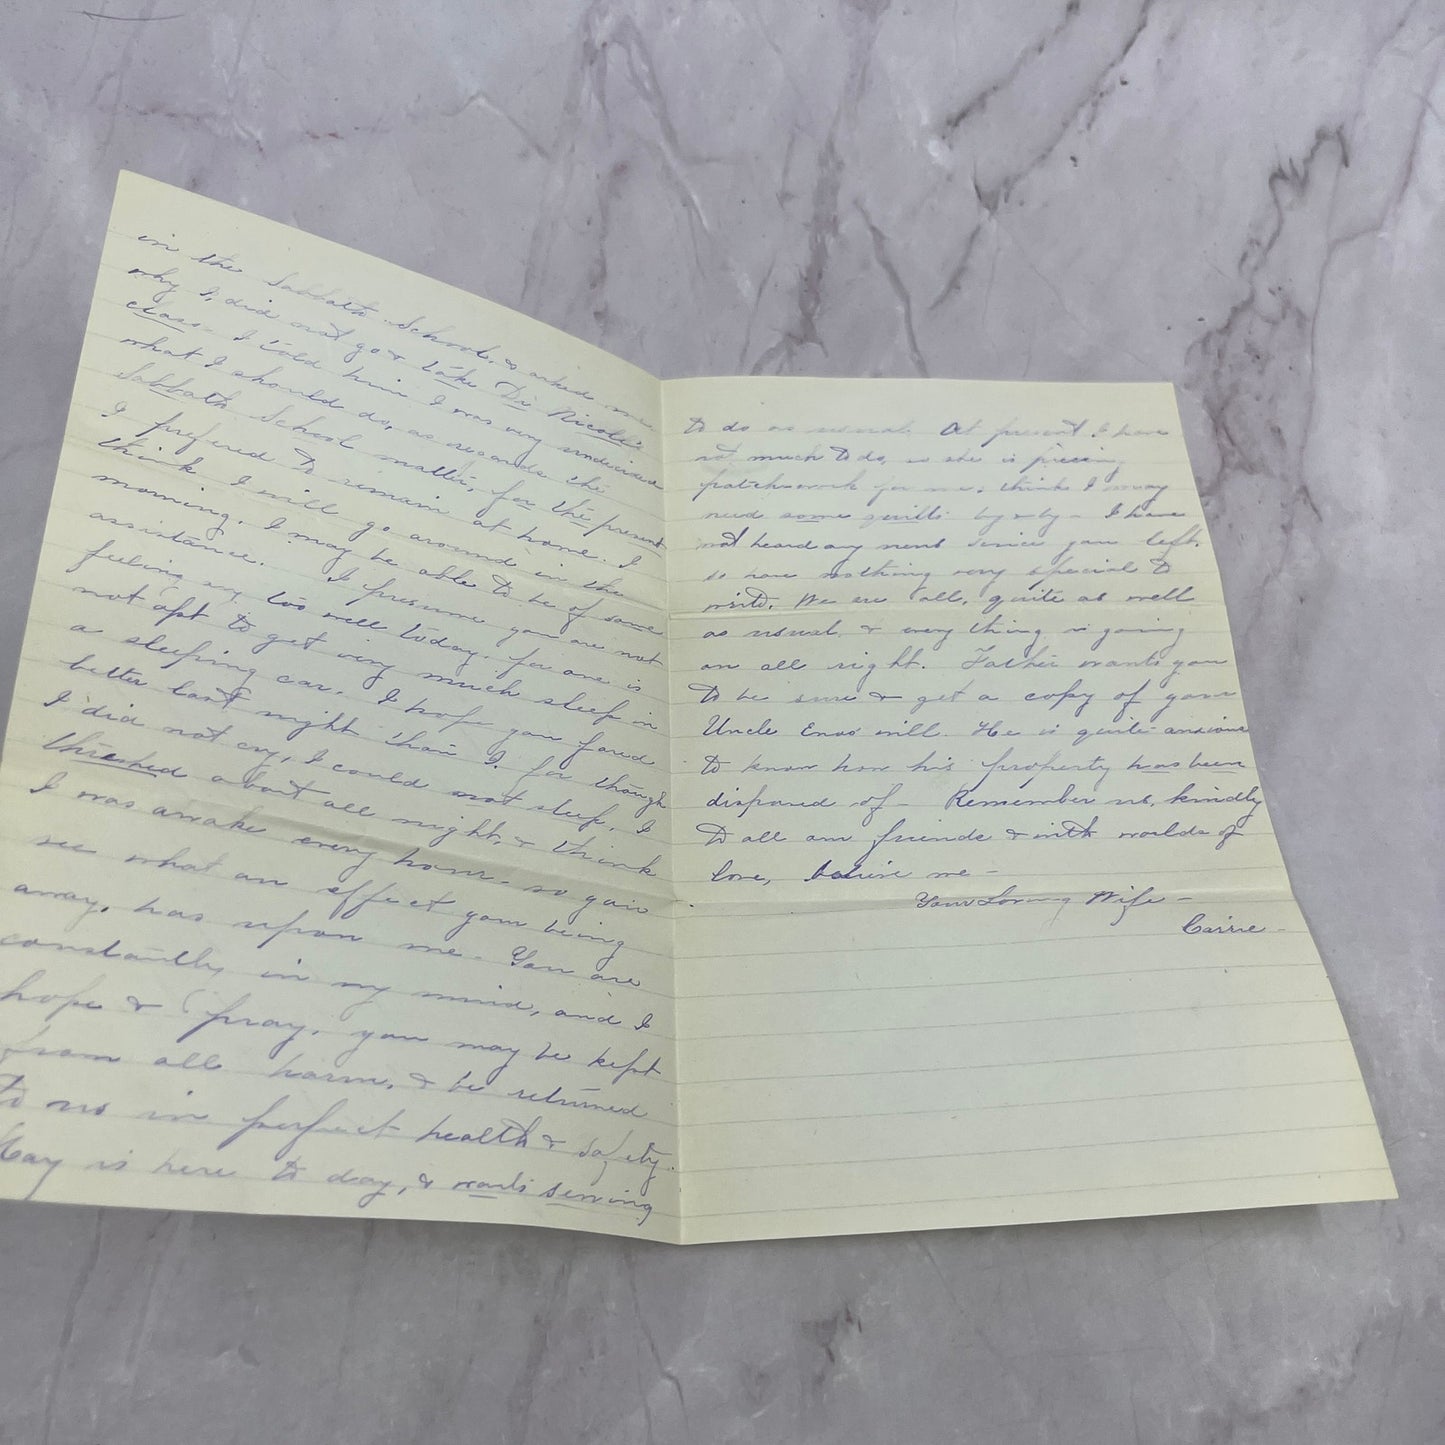 in the Sabbath School, & asked me
why I did not go & take Dr Nicoll's
class. I told him I was very undecided
what I should do, as regards the
Sabbath School matter, for the present
I preferred to remain at home. I
think I will go around in the
morning. I may be able to be of some
assistance. I presume you are not
feeling any too well today, for one is
not apt to get very much sleep in
a sleeping car. I hope you fared
better last night than I, for though
I did not cry, I could not sleep. I
thrashed about all night, & think
I was awake every hour. so you
see what an effect your being
away, has upon me. You are
constantly in my mind, and I
hope & pray, you may be kept
from all harm, & be returned
to us in perfect health & safety.
May is here to day, & wants sewing
to do as usual. At present I have
not much to do, so she is piecing
patchwork for me, think I may
need some quilts by & by - I have
not heard any news since you left,
so have nothing very special to
write. We are all, quite as well
as usual, & every thing is going
on all right. Father wants you
to be sure & get a copy of your
Uncle Enos' will. He is quite anxious
to know how his property has been
disposed of - Remember us, kindly
to all our friends & with worlds of
love, believe me -
Your Loving Wife -
Carrie -